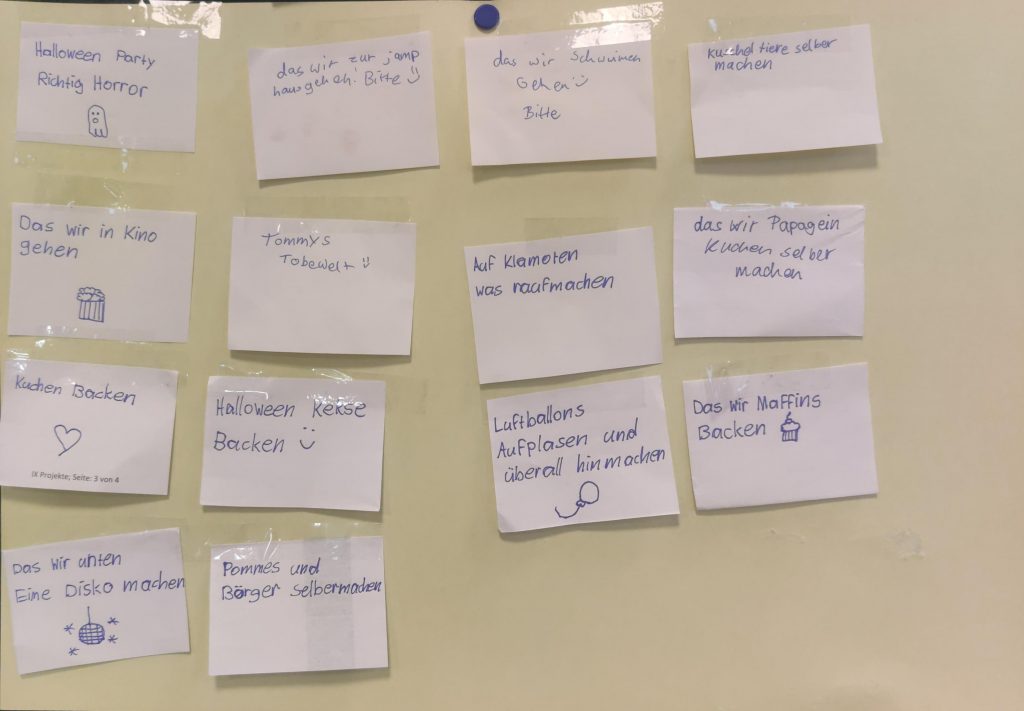 Halloween Party
Richtig Horror
das wir zur jamp
haus gehen! Bitte
das wir Schwimen
Gehen
Bitte
Kuscheltiere selber
machen
Das wir in Kino
gehen
Tommys
Tobewelt
Auf Klamoten
was raufmachen
das wir Papagein
Kuchen selber
machen
Kuchen Backen
IX Projekte; Seite: 3 von 4
Halloween Kekse
Backen
Luftballons
Aufplasen und
überall hinmachen
Das wir Maffins
Backen
Das wir unten
Eine Disko machen
Pommes und
Börger selbermachen